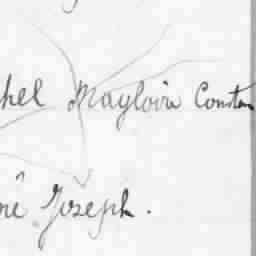 hel Mayloire Constan
né Joseph.